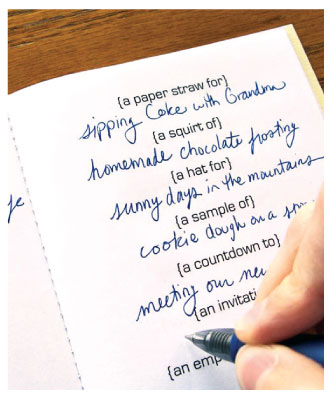 {a paper straw for}
sipping Coke with Grandma
{a squirt of}
homemade chocolate frosting
{a hat for}
sunny days in the mountains
{a sample of}
cookie dough on a
{a countdown to}
meeting our
{an
{an